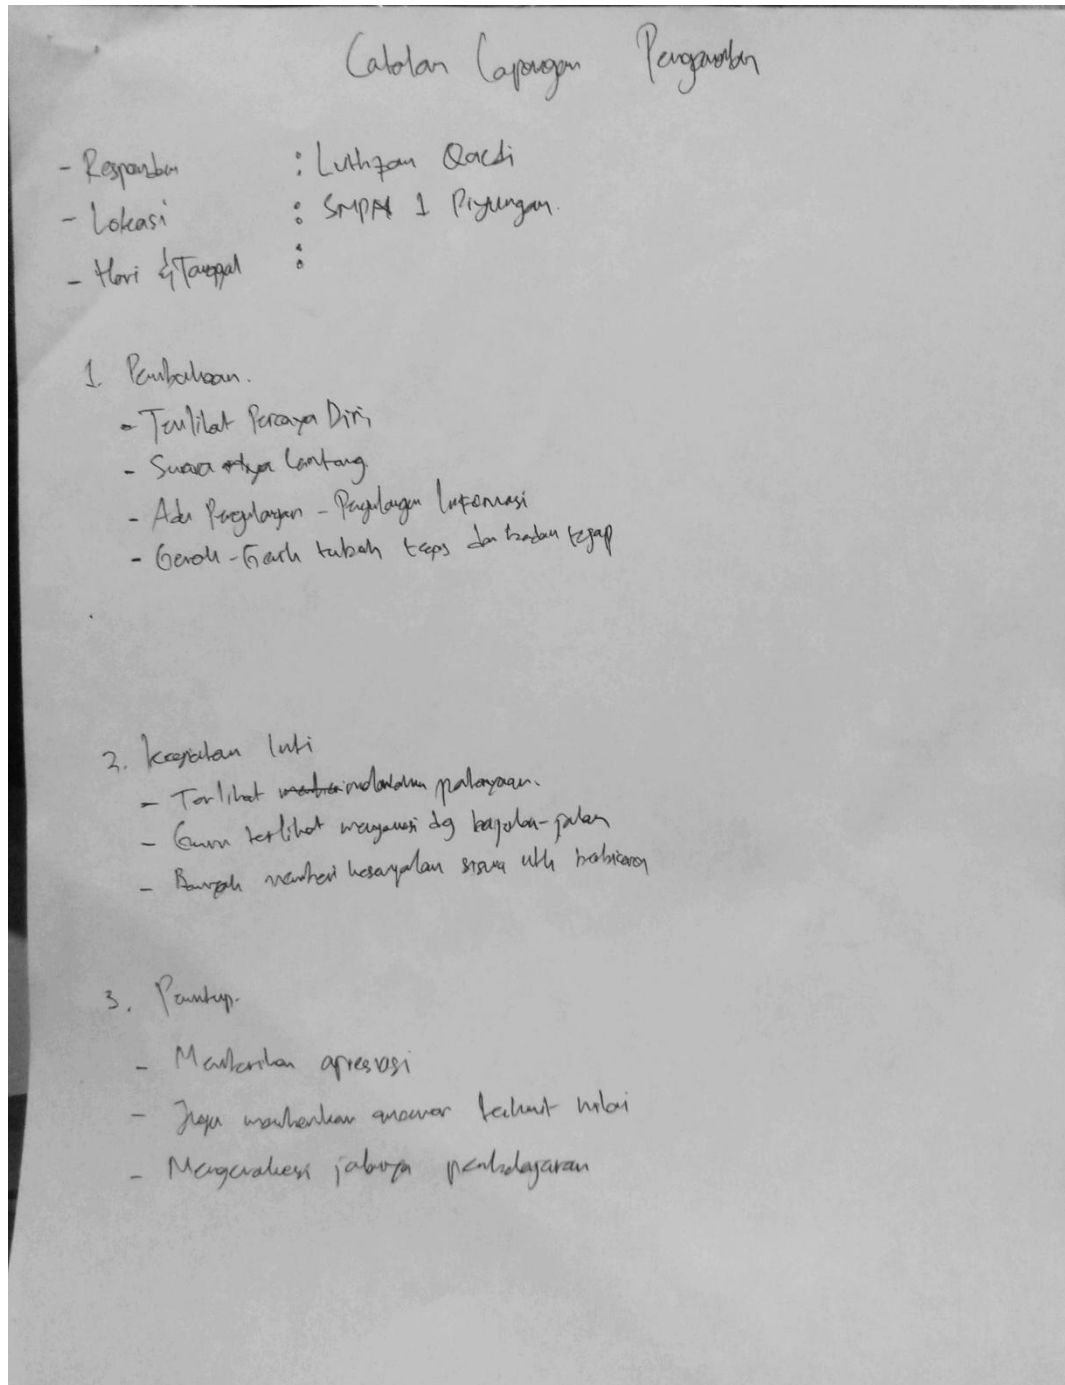 Catatan Lapangan Pengamatan
- Responden : Luthfan Qaedi
- Lokasi : SMPN 1 Piyungan.
- Hari & Tanggal :
1. Pembukaan.
- Terlihat Percaya Diri
- Suara nya lantang
- Ada Pengulangan - Pengulangan Informasi
- Gerak - Gerik tubuh tegas dan badan tegap
2. kegiatan Inti
- Terlihat melontarkan pertanyaan.
- Guru terlihat mengawasi dg berjalan-jalan
- Banyak memberi kesempatan siswa utk berbicara
3. Penutup.
- Memberikan apresiasi
- Juga memberikan terkait nilai
- Mengevaluasi jalannya pembelajaran